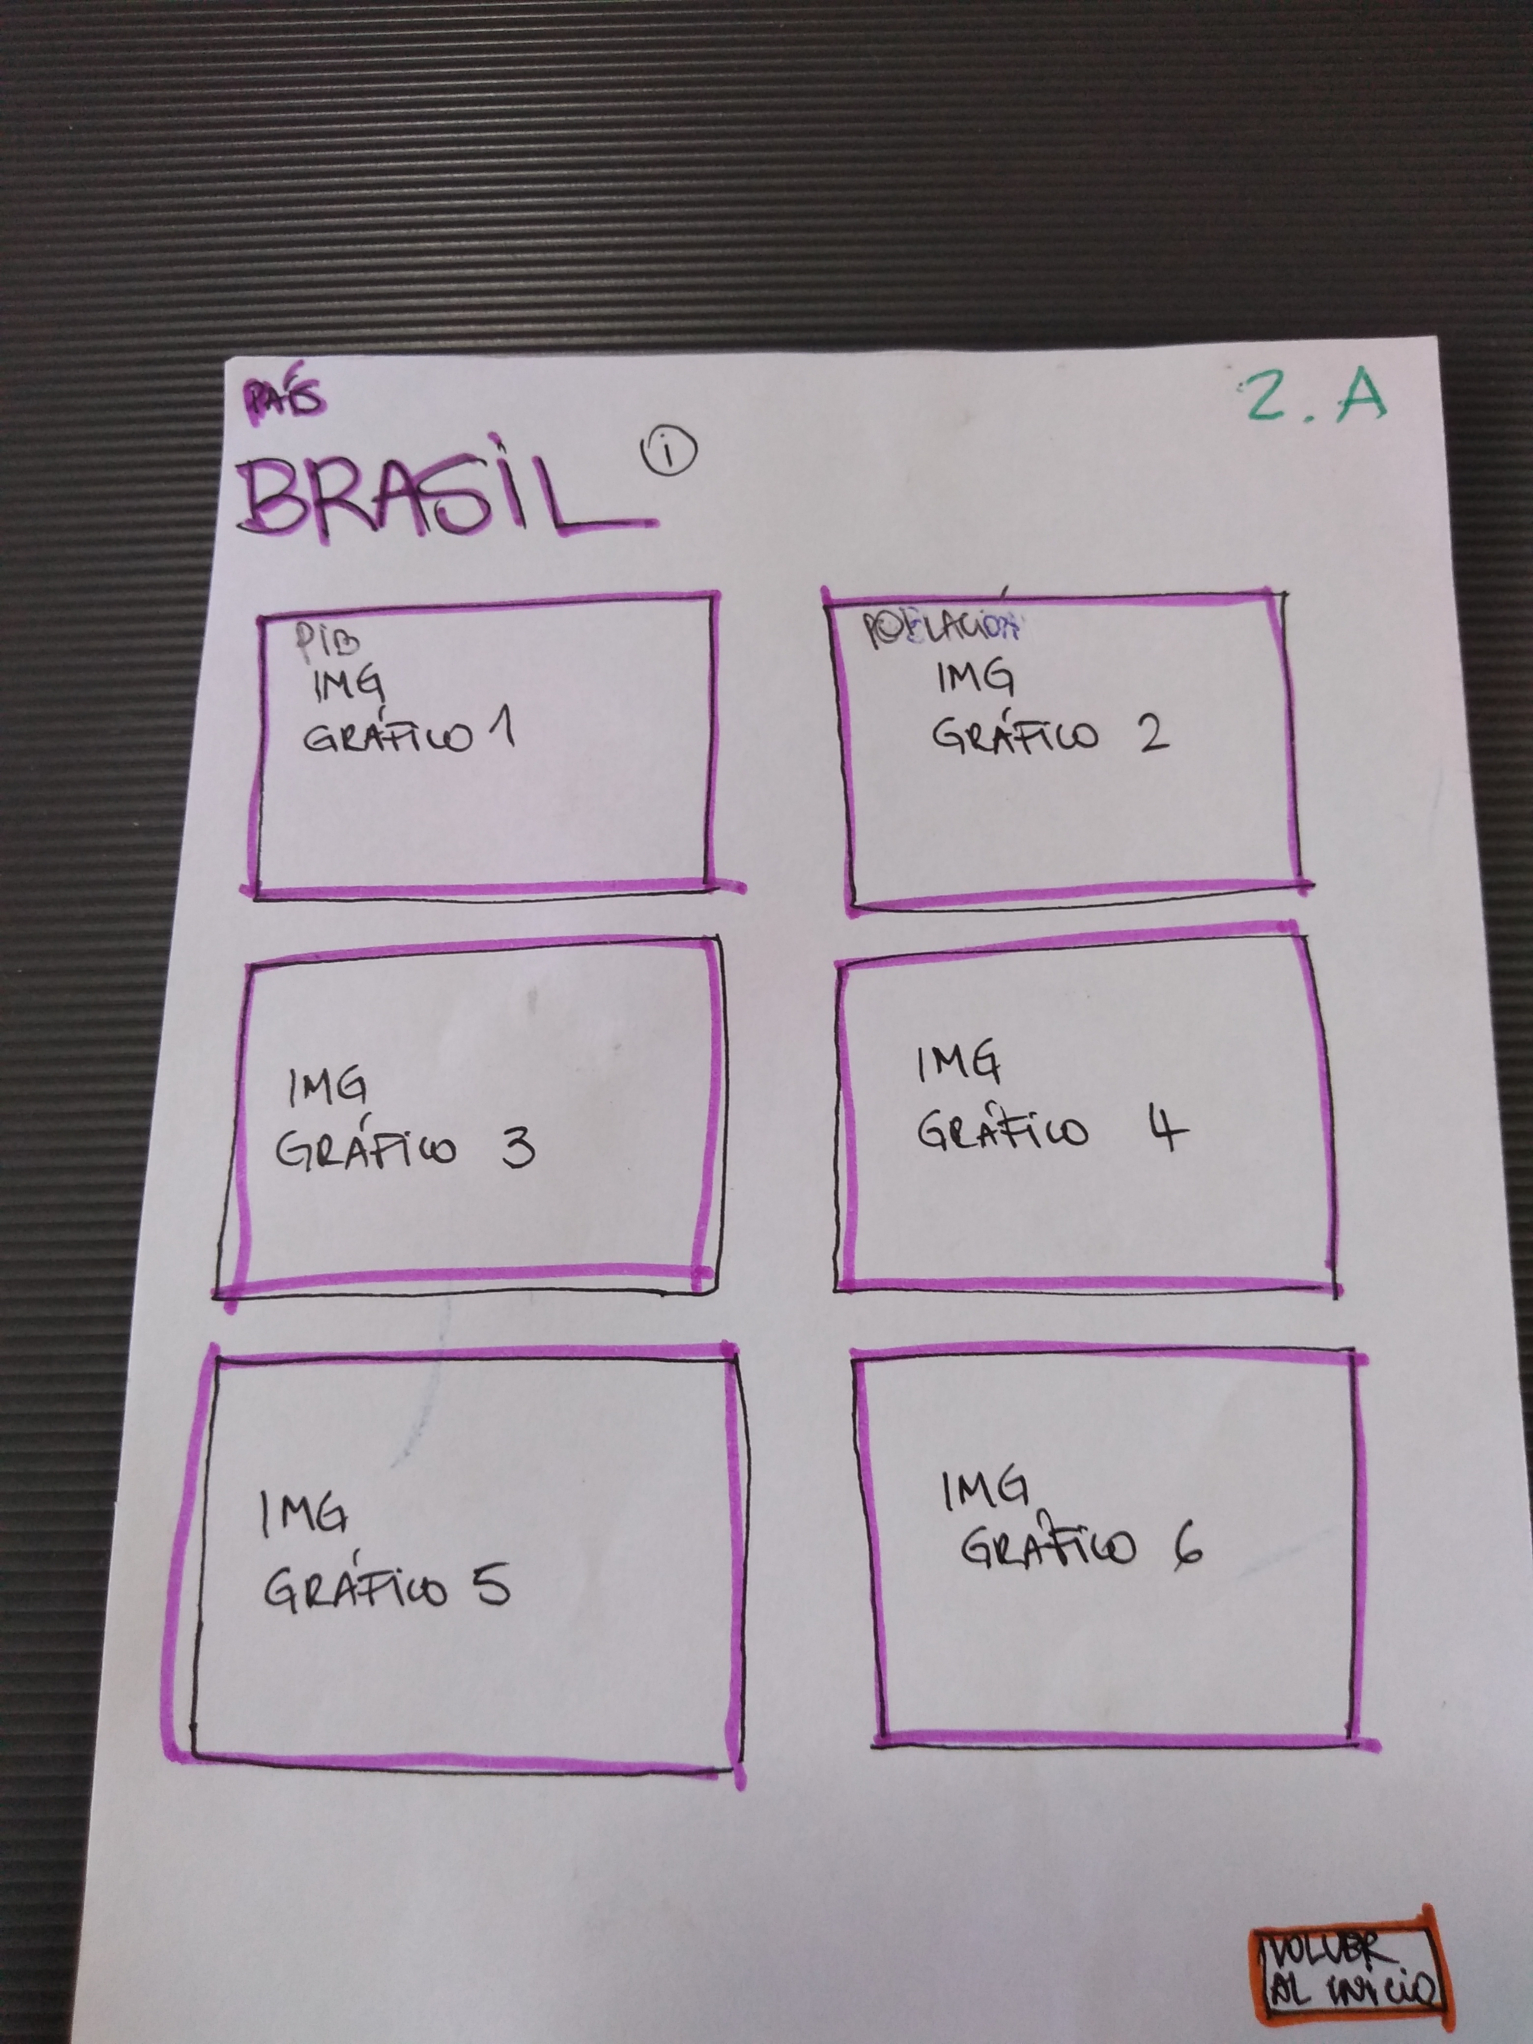 PAÍS
2. A
BRASIL i
PIB
IMG
GRÁFICO 1
POBLACIÓN
IMG
GRÁFICO 2
IMG
GRÁFICO 3
IMG
GRÁFICO 4
IMG
GRÁFICO 5
IMG
GRÁFICO 6
VOLVER
AL INICIO